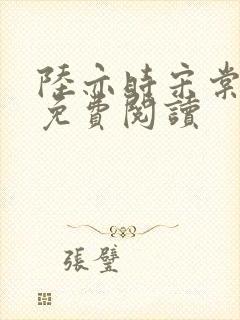 陸亦時宋棠
免費閱讀
張璧